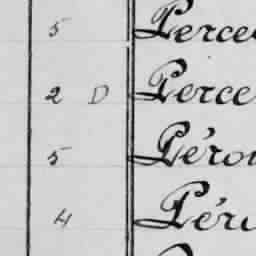 5 Perce
2 D Perce
5 Pérou
4 Péru